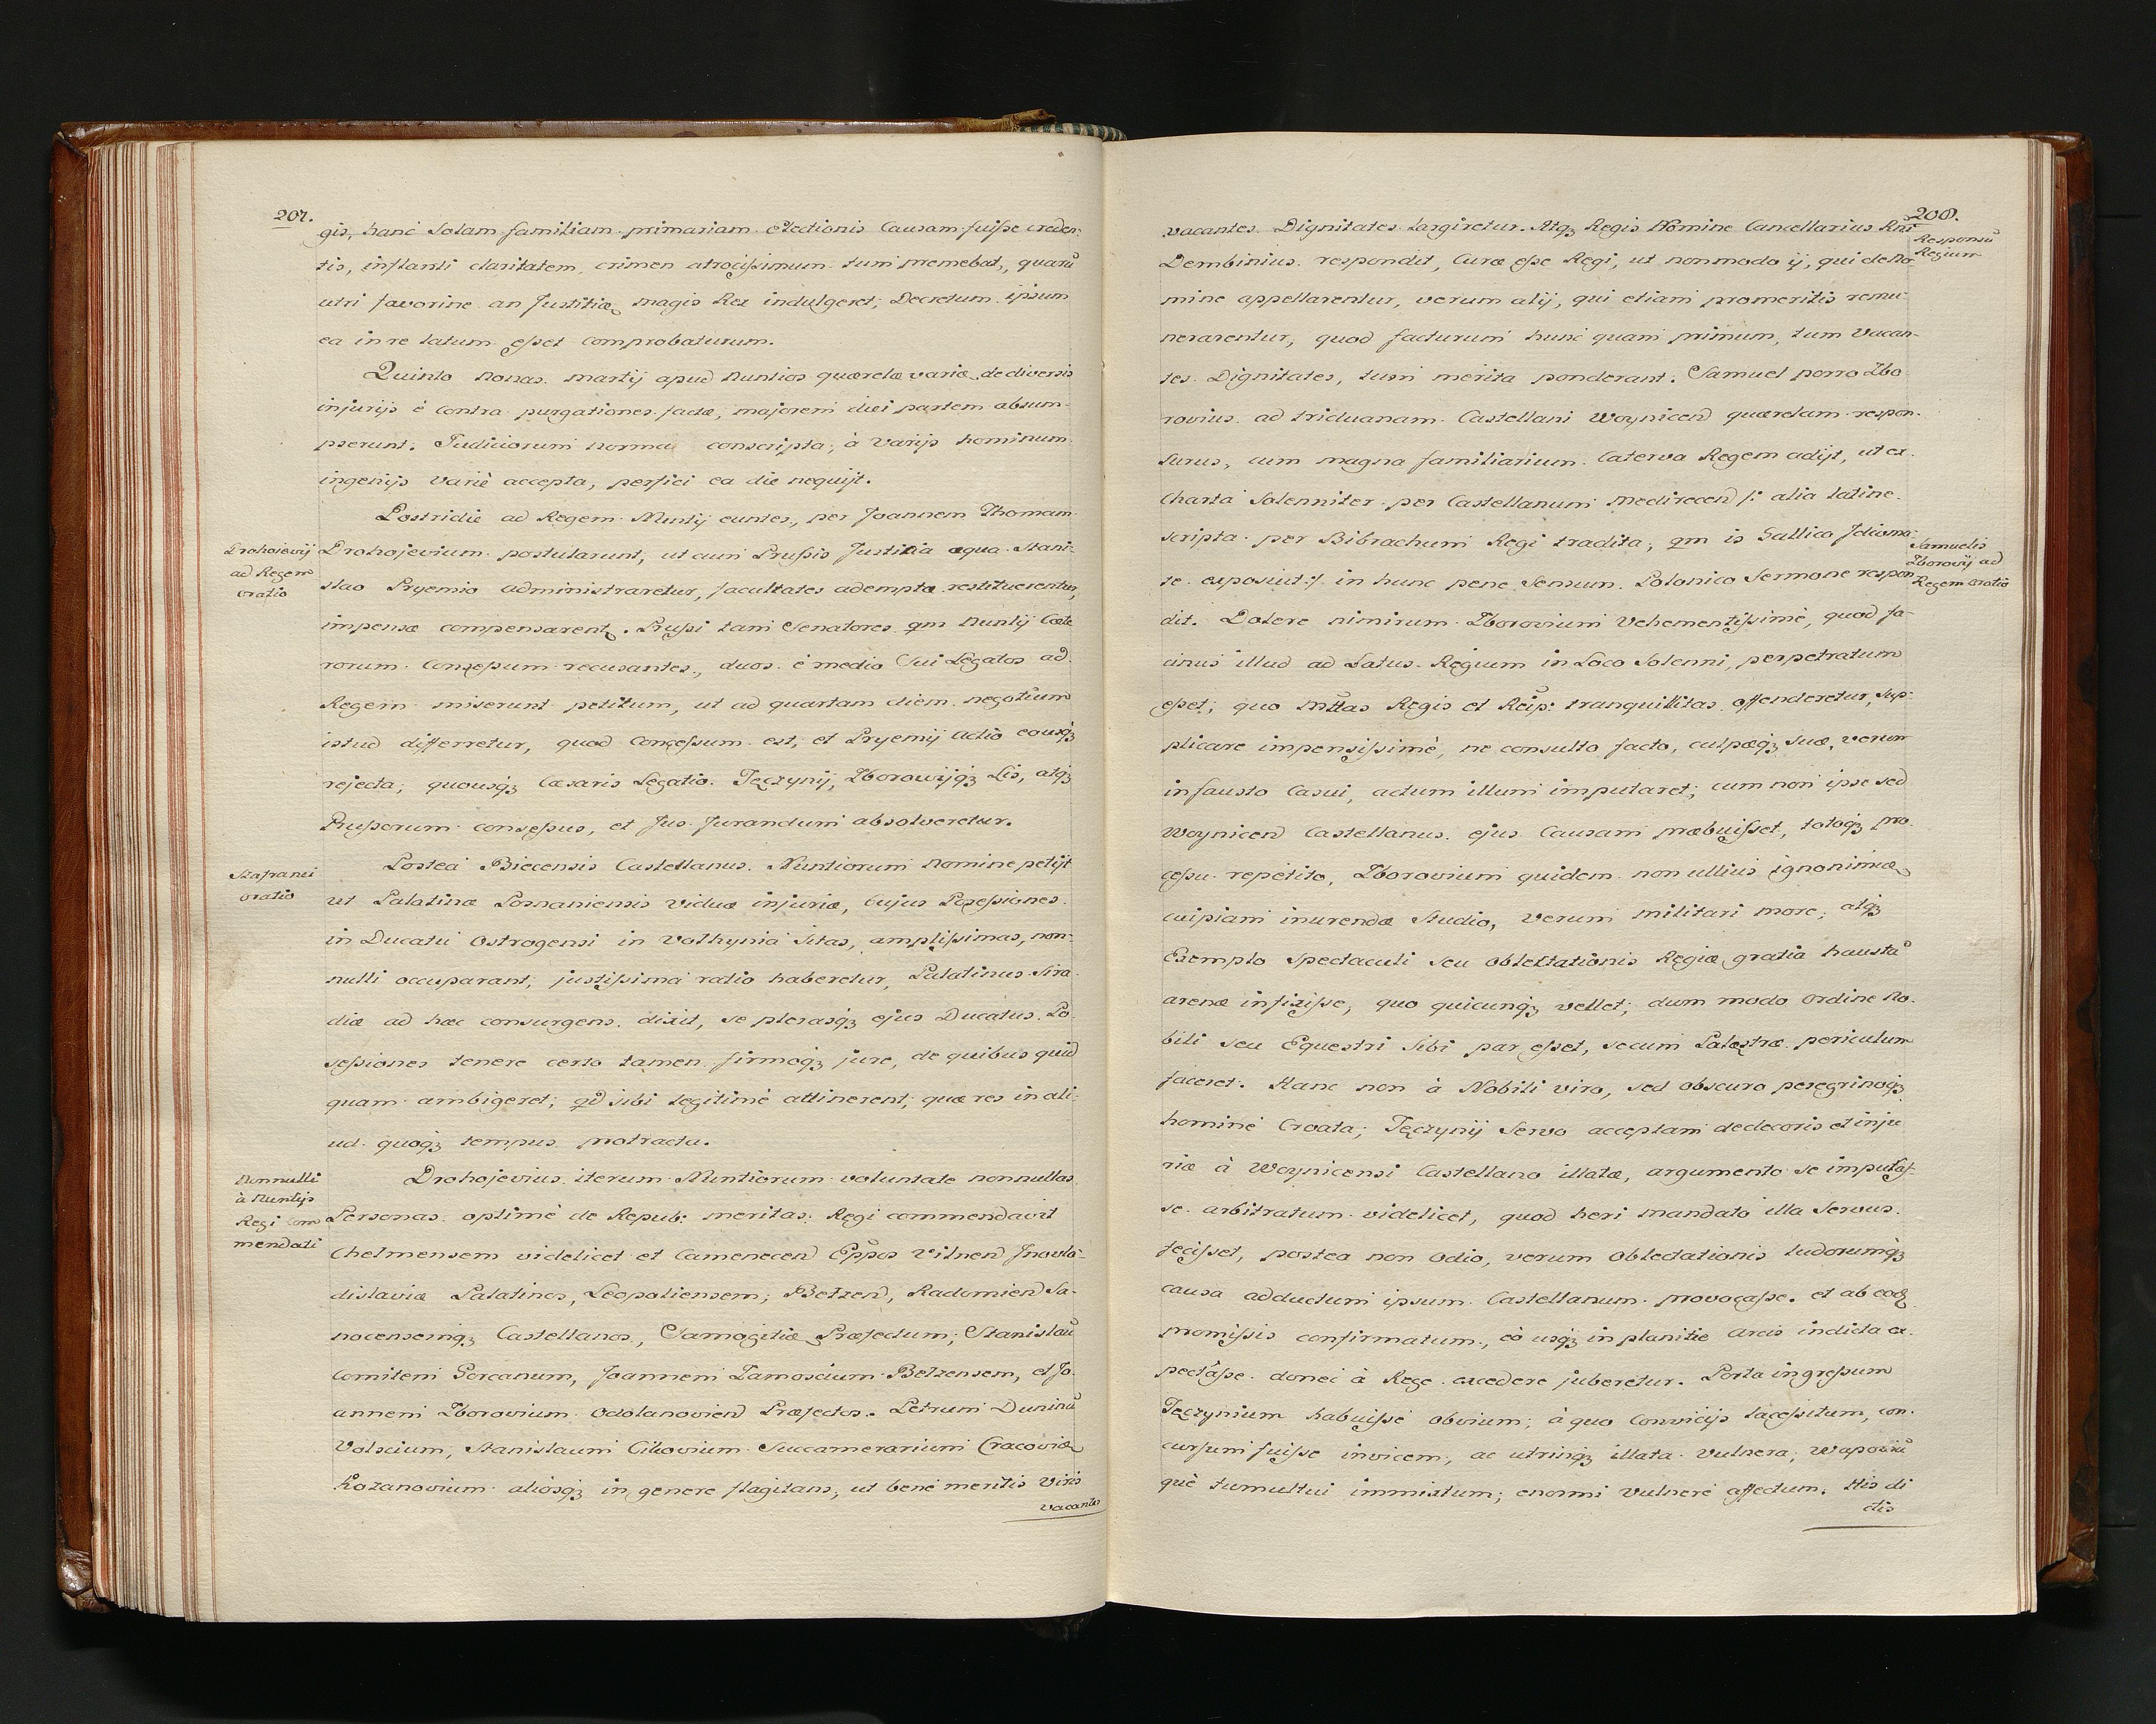 207.
gis, hanc Solam familiam primariam electionis Causam fuisse creden:
tis, instanti claritatem, crimen atrocissimum tum premebat, quarũ
utri favorine an Justitiæ magis Rex indulgeret; Decretum ipsum
ea in re latum esset comprobaturum.
Quinto Nonas Martij apud Nuntios quærelæ variæ de diversis
injurijs è contra purgationes factæ, majorem diei partem absum-
pserunt. Judiciorum norma conscripta; à Varijs hominum
ingenijs Variè accepta, perfici ea die nequijt.
Postridie ad Regem Nuntij euntes, per Joannem Thomam
Drohojevij
ad Regem
oratio
Drohojevium postularunt, ut cum Prussis Justitia æqua Stani-
slao Pryemio administraretur, facultates ademptæ restituerentur,
impensæ compensarent. Prussi tam Senatores qm Nuntij Cæte
rorum Consessum recusantes, duos è medio Sui Legatos ad
Regem miserunt petitum, ut ad quartam diem negotium
istud differretur, quod Concessum est, et Pryemij actio eousq3
rejecta, quousq3 Cæsaris Legatio. Tęczynij, Zborowijq3 Lis, atq3
Prussorum consessus, et Jus Jurandum absolveretur.
Szafranci
oratio
Posteà Biecensis Castellanus Nuntiorum Nomine petijt
ut Palatinæ Posnaniensis Viduæ injuriæ, Cujus Possessiones
in Ducatu Ostrogensi in Volhynia Sitas, amplissimas, non-
nulli occuparant, justissima ratio haberetur, Palatinus Sira-
diæ ad hæc consurgens dixit, se plerasq3 ejus Ducatus Po-
sessiones tenere certo tamen firmoq3 jure, de quibus quid
quam ambigeret; qd sibi legitimè attinerent; quæ res in ali-
ud quoq3 tempus protracta.
Nonnulli
à Nuntijs
Regi Com
mendati
Drohojevius iterum Nuntiorum voluntate nonnullas
Personas optimè de Repub: meritas Regi commendavit
Chelmensem videlicet et Camenecen Eppos Vilnen Jnovla-
dislaviæ Palatinos, Leopoliensem; Betzen, Radomien Sa-
nocensemq3 Castellanos, Samogitiæ Præfectum; Stanislaũ
Comitem Gorcanum, Joannem Zamoscium Betzensem, et Jo
annem Zborovium Odolanovien Præfectos. Petrum Duninũ
Volscium, Stanislaum Cikovium Succamerarium Cracoviæ
Kozanovium aliosq3 in genere flagitans, ut bene meritis Viris
vacantes
208.
vacantes Dignitates largiretur. Atq3 Regis Nomine Cancellarius Rni
Responsũ
Regium
Dembinius respondit, Curæ esse Regi, ut non modo ij, qui de No
mine appellarentur, verum alij, qui etiam promeritis remu-
nerarentur, quod facturum hunc quam primum, tum Vacan-
tes Dignitates, tum merita ponderant. Samuel porro Zbo
rovius ad triduanam Castellani Woynicen quærelam respon-
surus, cum magna familiarium Caterva Regem adijt, ut ex
Charta Solenniter per Castellanum Medirecen /: alia latine
scripta per Bibrachum Regi tradita, qm is Gallico Jdioma-
Samuelis
Zborovij ad
Regem oratio
te exposuit :/ in hunc pene Sensum Polonico Sermone respon
dit. Dolere nimirum Zborovium Vehementissimè, quod fa-
cinus illud ad Latus Regium in Loco Solenni, perpetratum
esset; quo Mttas Regis et Reip: tranquillitas offenderetur, Sup-
plicare impensissimè, ne consulto facto, culpæq3 suæ, verum
infausto Casui, actum illum imputaret; cum non ipse sed
Woynicen Castellanus ejus Causam præbuisset, totoq3 pro
cessu repetito, Zborovium quidem non ullius ignonimiæ
cuipiam inurendæ Studio, verum militari more, atq3
Exemplo Spectaculi seu oblectationis Regiæ gratia hasta
arenæ infixisse, quo quicunq3 vellet; dum modo ordine No-
bili seu Equestri Sibi par esset, secum Palæstræ periculum
faceret. Hanc non à Nobili viro, sed obscuro peregrinoq3
homine Croata; Tęczynij Servo acceptam dedecoris et inju
riæ à Woynicensi Castellano illatæ, argumento se imputas-
se arbitratum videlicet, quod heri mandato illa Servus
fecisset, postea non odio, verum oblectationis ludorumq3
causa adductum ipsum Castellanum provocasse. et ab eod
promissis confirmatum, eò usq3 in planitie arcis indicta ex-
pectasse donec à Rege excedere juberetur. Porta ingressum
Tęczynium habuisse obvium; à quo Convicijs lacessitum, con-
cursum fuisse invicem, ac utrinq3 illata Vulnera; Wapoviũ
què tumultui immixtum; enormi Vulnere affectum. His di
ctis